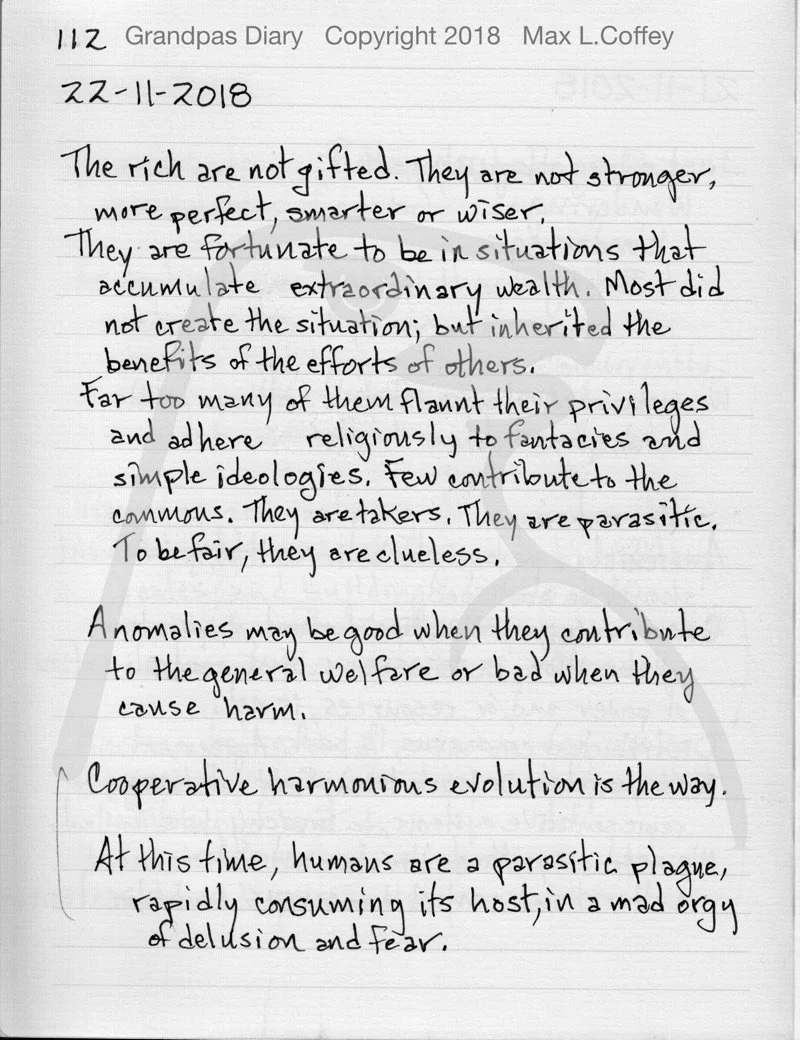 112 Grandpas Diary Copyright 2018 Max L.Coffey
22-11-2018
The rich are not gifted. They are not stronger,
more perfect, smarter or wiser.
They are fortunate to be in situations that
accumulate extraordinary wealth. Most did
not create the situation; but inherited the
benefits of the efforts of others.
Far too many of them flaunt their privileges
and adhere religiously to fantacies and
simple ideologies. Few contribute to the
commons. They are takers. They are parasitic.
To be fair, they are clueless.
Anomalies may be good when they contribute
to the general welfare or bad when they
cause harm.
Cooperative harmonious evolution is the way.
At this time, humans are a parasitic plague,
rapidly consuming its host, in a mad orgy
of delusion and fear.